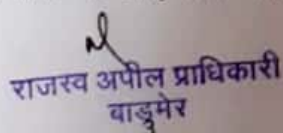 राजस्व अपील प्राधिकारी
बाड़मेर